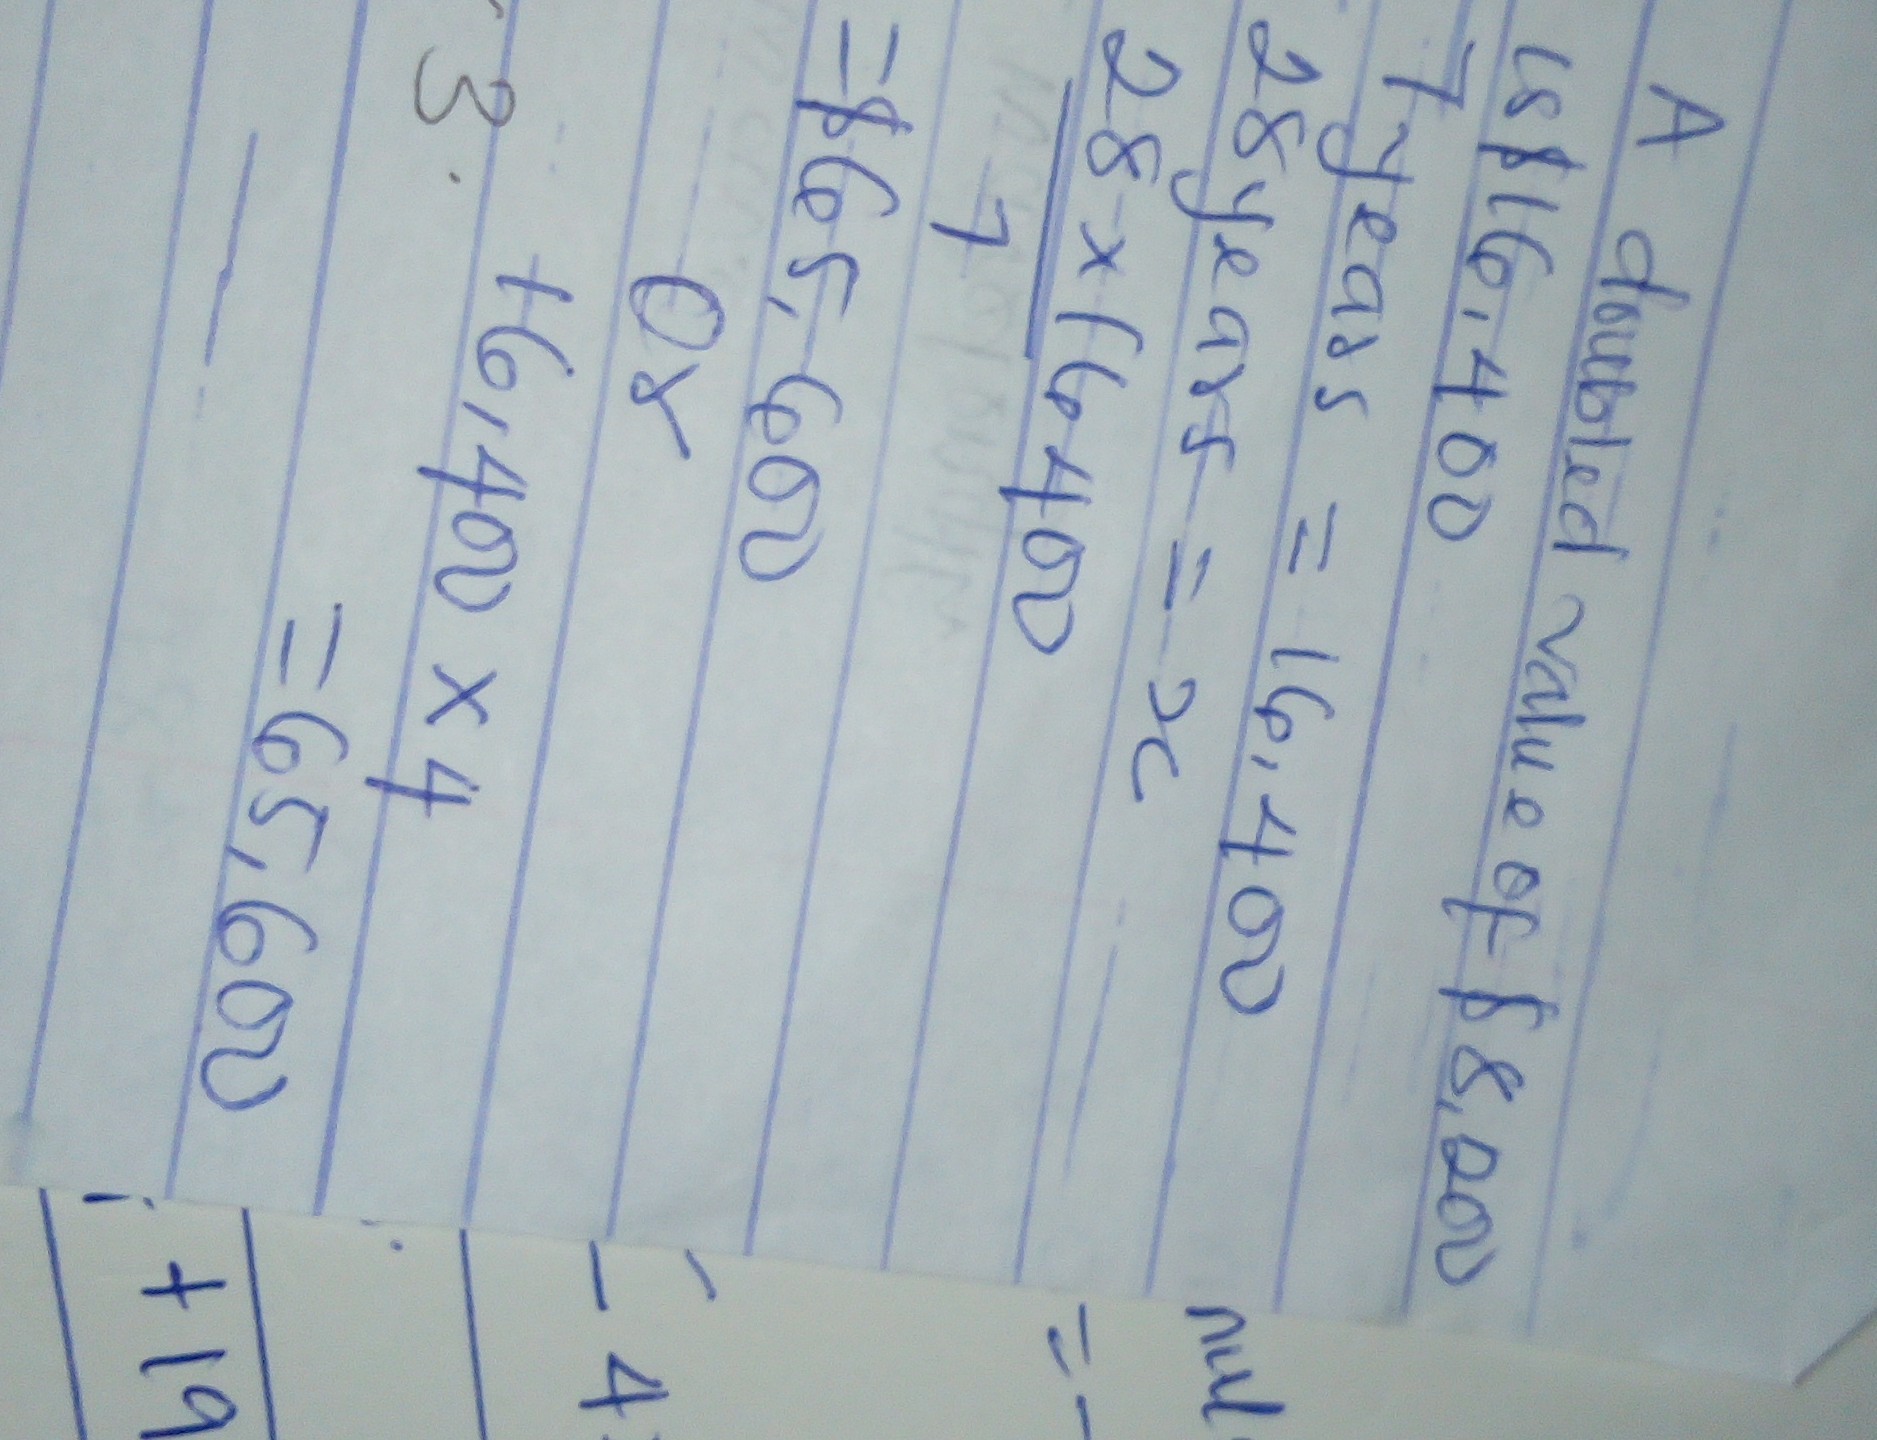 A doubled value of $8,200
is $16,400
7 years = 16,400
28 years = x
28 x 16400
7
= $65,600
Or
16,400 x 4
= 65,600
3.
=
- 4
+ 19